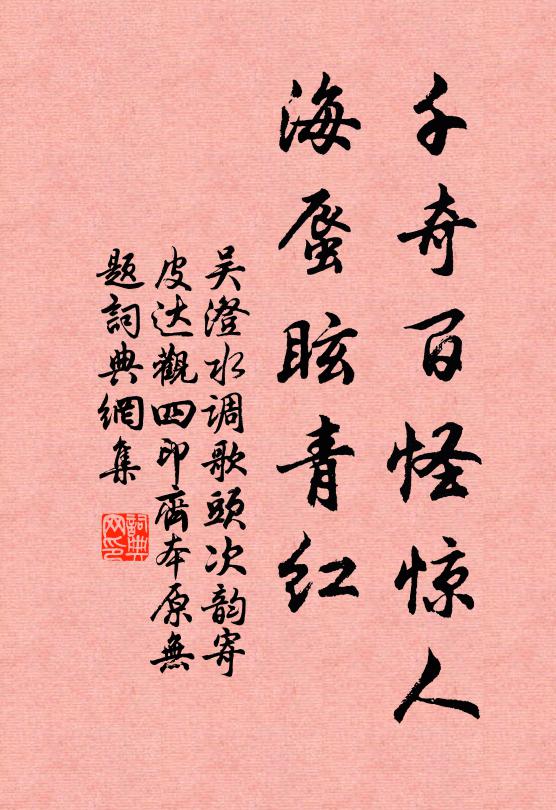 千奇百怪惊人
海蜃眩青红
吴澄水调歌頭次韵寄
皮达觀四印齋本原無
题詞典網集
詞典
网印